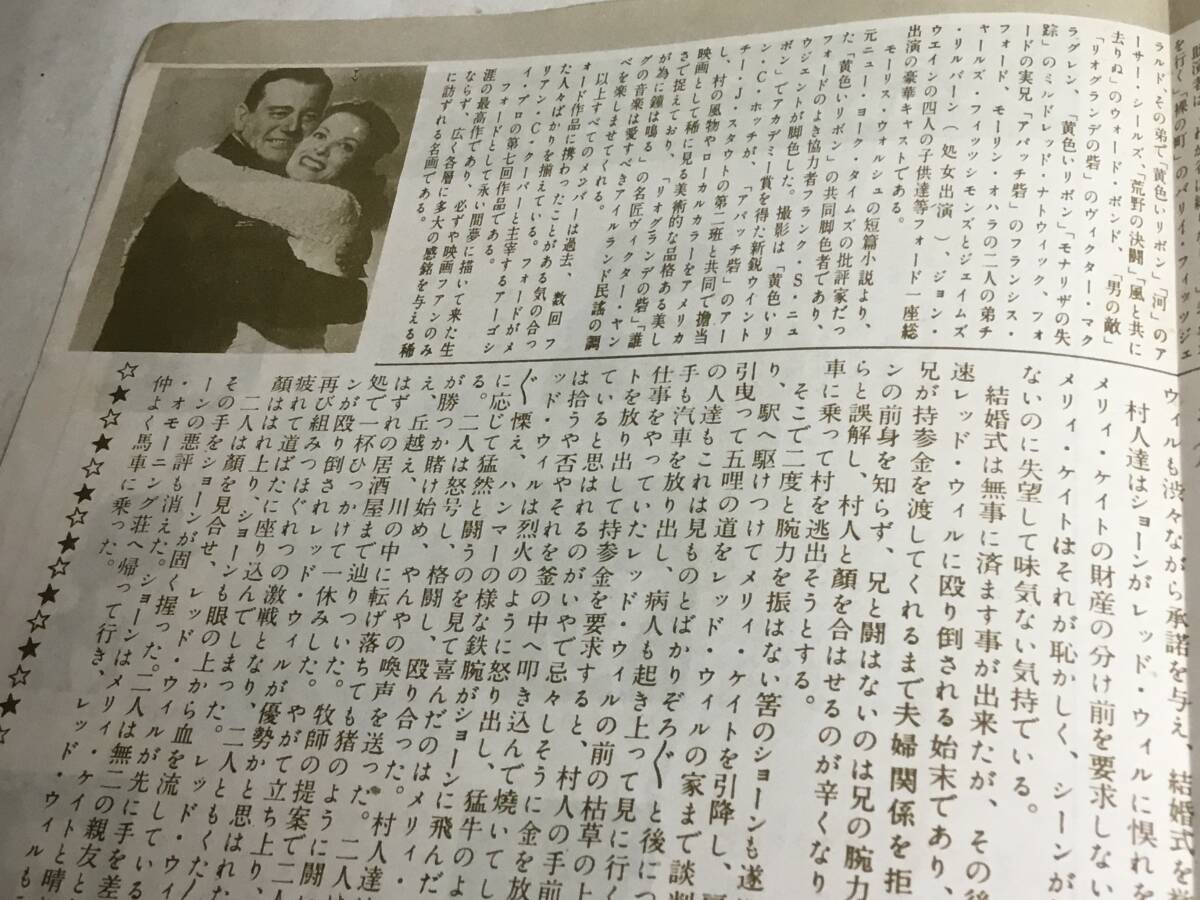 ラルド、その弟で「黄色いリボン」「河」のア
ーサー・シールズ、「荒野の決闘」「風と共に
去りぬ」のウォード・ボンド、「男の敵」
「リオグランデの砦」のヴィクター・マク
ラグレン、「黄色いリボン」「モナリザの失
踪」のミルドレッド・ナトウィック、フォ
ードの実兄「アパッチ砦」のフランシス・
フォード、モーリン・オハラの二人の弟チ
ャールズ・フィッツシモンズとジェイムズ
・リルバーン（処女出演）、ジョン・
ウエインの四人の子供達等フォード一座総
出演の豪華キャストである。
モーリス・ウォルシュの短篇小説より、
元ニュー・ヨーク・タイムズの批評家だっ
た「黄色いリボン」の共同脚色者であり、
フォードのよき協力者フランク・S・ニュ
ウジェントが脚色した。撮影は「黄色いリ
ボン」でアカデミー賞を得た新鋭ウイント
ン・C・ホッチが、「アパッチ砦」のアー
チー・J・スタウトの第二班と共同で擔当
し、村の風物やローカルカラーをアメリカ
映画として稀に見る美術的な品格ある美し
さで捉えており、「リオグランデの砦」「誰
が為に鐘は鳴る」の名匠ヴィクター・ヤン
グの音楽は愛すべきアイルランド民謡の調
べを楽しませてくれる。
以上すべてのメンバーは過去、数回フ
ォード作品に携わったことがある気の合っ
た人々ばかりを揃えている。フォードがメ
リアン・C・クーパーと主宰するアーゴシ
イ・プロの第七回作品である。
フォードとして永い間夢に描いて来た生
涯の最高作であり、必ずや映画フアンのみ
ならず、広く各層に多大の感銘を与える稀
に訪れる名画である。
ウィルも渋々ながら承諾を与え、結婚式を
村人達はショーンがレッド・ウィルに惧れを
メリィ・ケイトの財産の分け前を要求しない
メリィ・ケイトはそれが恥かしく、ショーンが
ないのに失望して味気ない気持でいる。
結婚式は無事に済ます事が出来たが、その後
速レッド・ウィルに殴り倒される始末であり、
兄が持参金を渡してくれるまで夫婦関係を拒
ンの前身を知らず、兄と闘はないのは兄の腕力
らと誤解し、村人と顔を合はせるのが辛くなり
車に乗って村を逃出そうとする。
そこで二度と腕力を振はない筈のショーンも遂
り、駅へ駆けつけてメリィ・ケイトを引降し、
引曳って五哩の道をレッド・ウィルの家まで談判
の人達もこれは見ものとばかりぞろ〱と後につ
手も汽車を放り出し、病人も起き上って見に行く
仕事をやっていたレッド・ウィルの前の枯草の上
トを放り出して持参金を要求すると、村人の手前
ていると思はれるのがいやで忌々しそうに金を放
は拾うや否やそれを釜の中へ叩き込んで燒いてし
ッド・ウィルは烈火のように怒り出し、猛牛のよ
ぐ慄え、ハンマーの様な鉄腕がショーンに飛んだ
に応じて猛然と闘うのを見て喜んだのはメリィ・
る。二人は怒号し、格闘し、殴り合った。村人達
が勝つか賭け始め、やんやの喚声を送った。二人
え、丘越え、川の中に転げ落ちても猪のように闘
はずれの居酒屋まで辿りついた。牧師の提案で二人
処で一杯ひっかけて一休みした。やがて立ち上り、
ンが殴り倒されレッド・ウィルが優勢かと思はれた
再び組みつほぐれつの激戦となり、二人ともくた〱
疲れて道ばたに座り込んでしまった。レッド・ウィ
顔はは れ上り、ショーンも眼の上から血を流している
二人は顔を見合せ、レッド・ウィルが先に手を差
その手をショーンが固く握った。二人は無二の親友と
ーンの悪評も消えた。ショーンはメリィ・ケイトと晴
・オ・モーニング荘へ帰って行き、レッド・ウィルも
仲よく馬車に乗った。